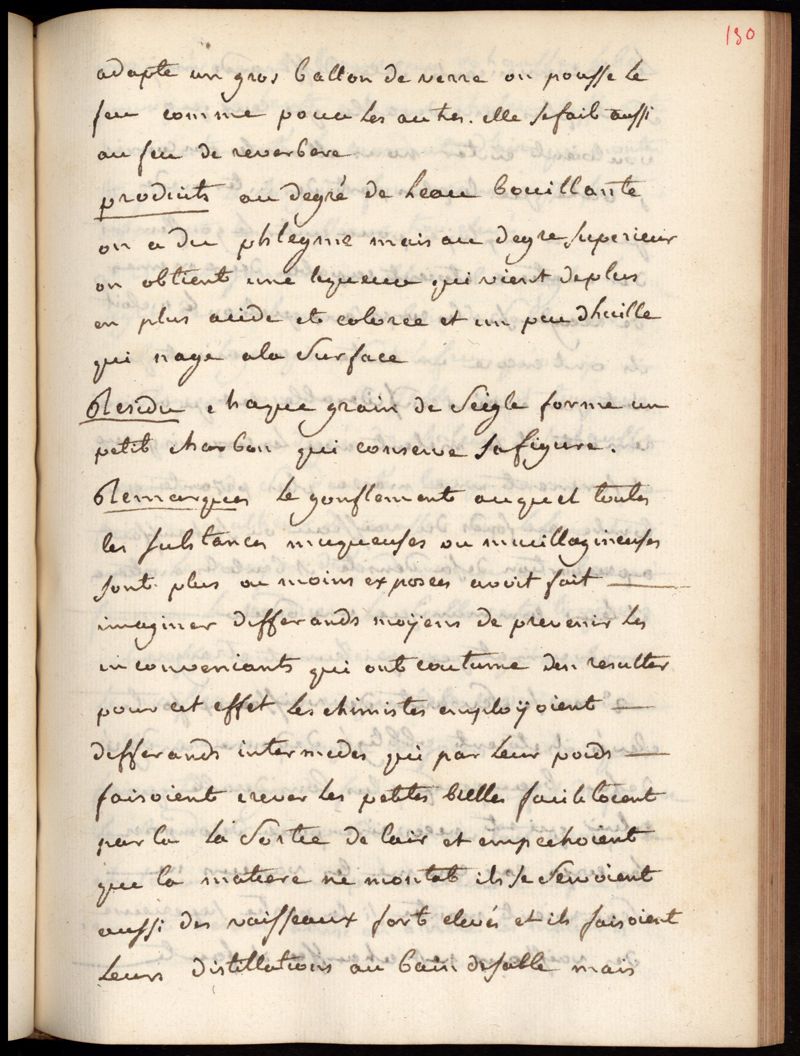 130
adapte un gros ballon de verre on pousse le
feu comme pour les autres. elle se fait aussi
au feu de reverbere
produits au degré de leau bouillante
on a du phlegme mais au degre superieur
on obtient une liqueur qui vient de plus
en plus acide et coloree et un peu dhuille
qui nage ala surface
Residu chaque grain de seigle forme un
petit charbon qui conserve sa figure.
Remarques le gonflement auquel toutes
les substances muqueuses ou mucillagineuses
sont plus ou moins exposees avoit fait
imaginer differands moÿens de prevenir les
inconveniants qui ont coutume den resulter
pour cet effet les chimistes emploÿoient
differands intermedes qui par leur poids
faisoient crever les petites bulles facilitoient
par la la sortie de lair et empechoient
que la matiere ne montat ils se servoient
aussi des vaisseaux fort elevés et ils faisoient
leurs distillations au bain de sable mais